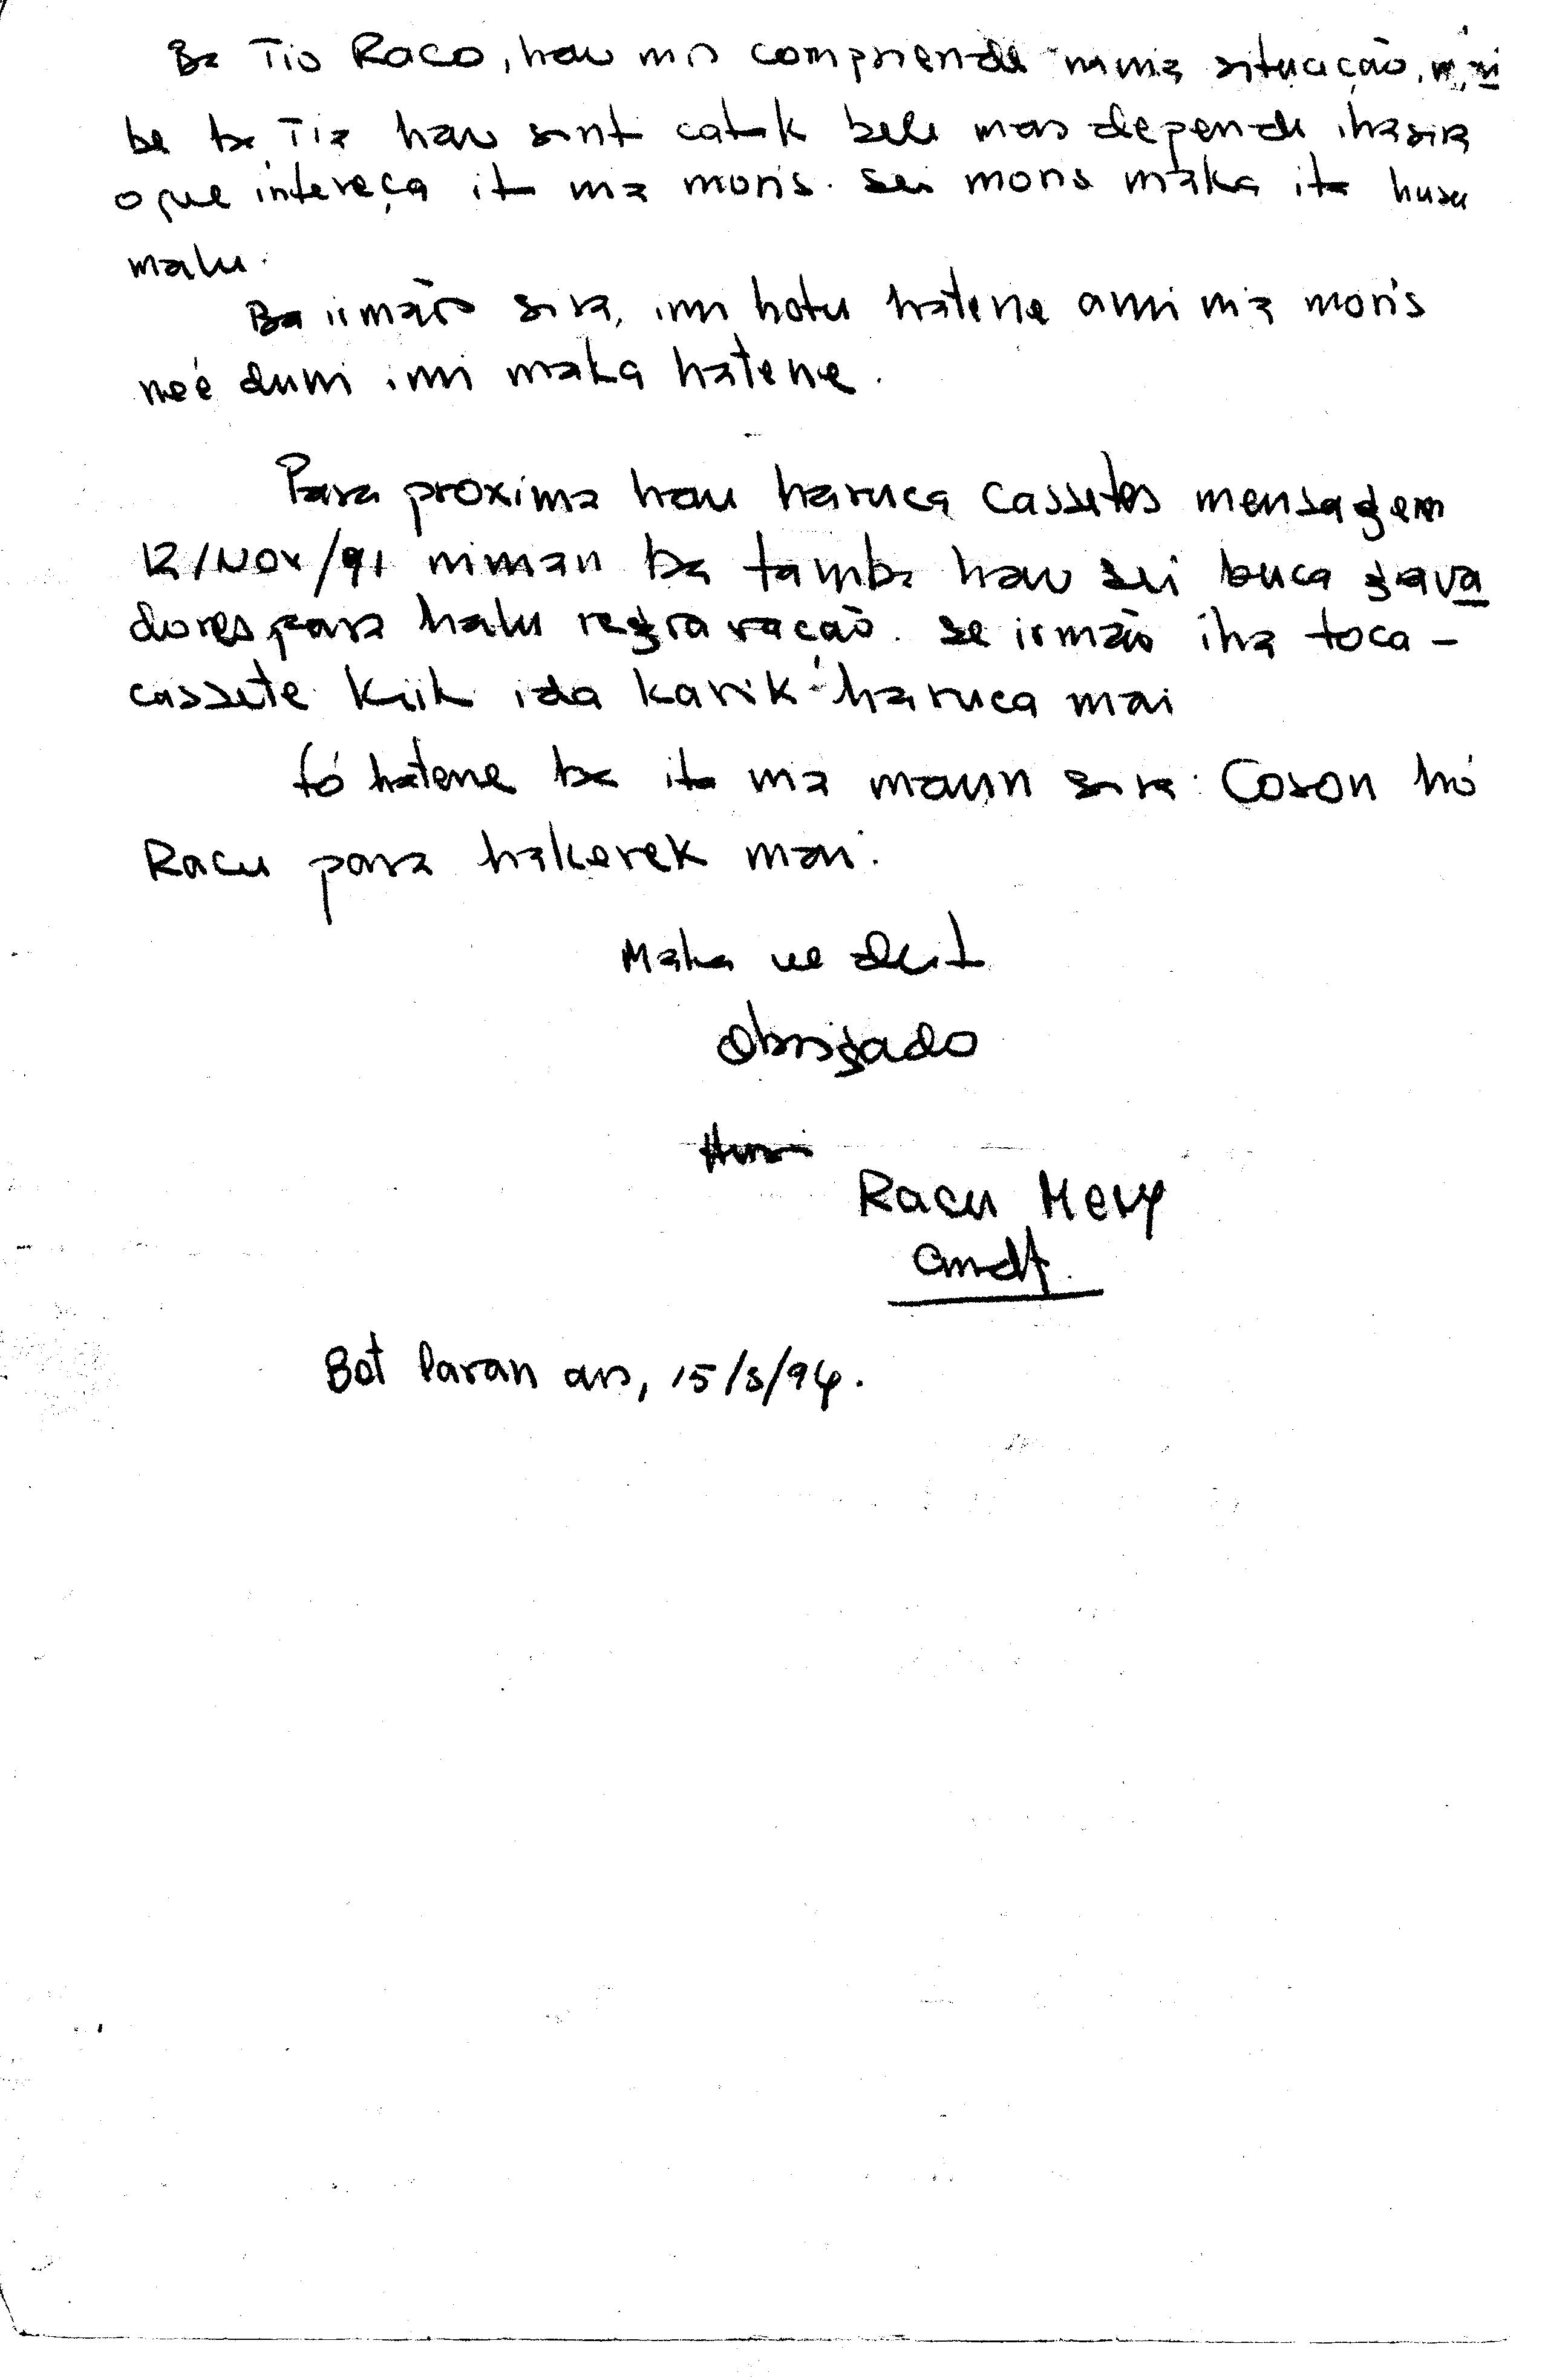 Ba Tio Raco, hau mos comprende ninia situação,
be ba Tia hau sint catak bele mas depende iha sira
oque intereça ita nia moris. Sei moris maka ita husu
malu.
Ba irmão sira, imi hotu hatene ami nia moris
neé duni imi maka hatene.
Para proxima hau haruca cassetes mensagem
12/Nov/91 niman ba tamba hau sei buca grava
dores para halu regravação. Se irmão iha toca-
cassete kiik ida karik haruca mai
fó hatene ba ita nia maun sira: Coson hó
Racu para hakerek mai.
Maka ne deit
Obrigado
Racu Mevy
Cmdt.
Bot Laran ans, 15/3/94.